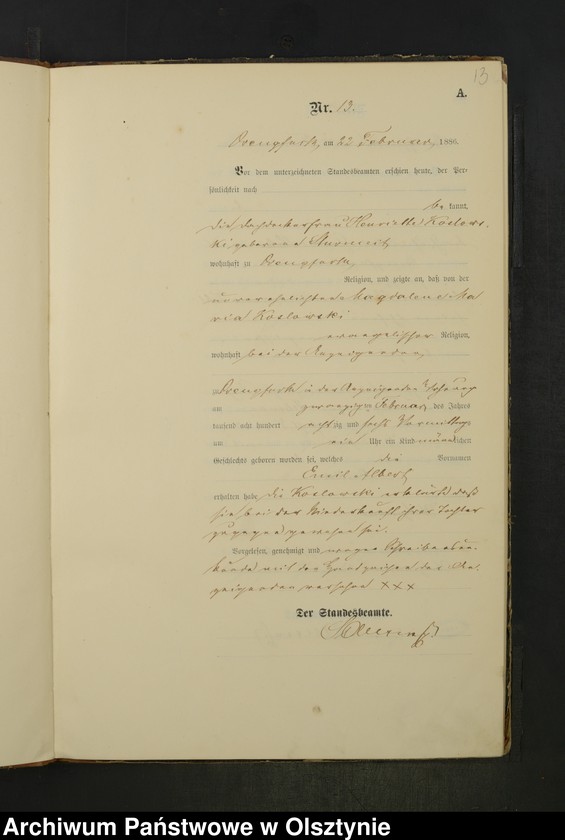 13
A.
Nr. 13.
am 22 Februar 1886.
Vor dem unterzeichneten Standesbeamten erschien heute, der Per-
sönlichkeit nach
be kannt,
die Dachdeckerfrau Henriette Koslows-
ki geborene
wohnhaft zu
Religion, und zeigte an, daß von der
unverehelichten Magdalene Ma
ria Koslowski
evangelischer Religion,
wohnhaft bei der Anzeigenden,
in der Anzeigenden Behausung
am zwanzigsten Februar des Jahres
tausend acht hundert achtzig und sechs Vormittags
um ein Uhr ein Kind männlichen
Geschlechts geboren worden sei, welches die Vornamen
Emil Albert
erhalten habe. Die Koslowski erklärte daß
sie bei der Niederkunft ihrer Tochter
zugegen gewesen sei.
Vorgelesen, genehmigt und wegen Schreibensun-
kunde mit den Handzeichen der An-
zeigenden versehen XXX
Der Standesbeamte.
Archiwum Państwowe w Olsztynie